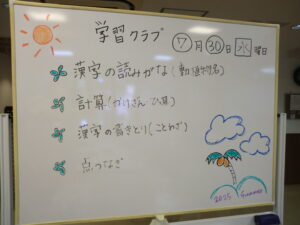 学習クラブ
7月30日 水曜日
漢字の読みがな(動植物名)
計算(かけざん ひっ算)
漢字の書きとり(ことわざ)
点つなぎ
2025 Summer